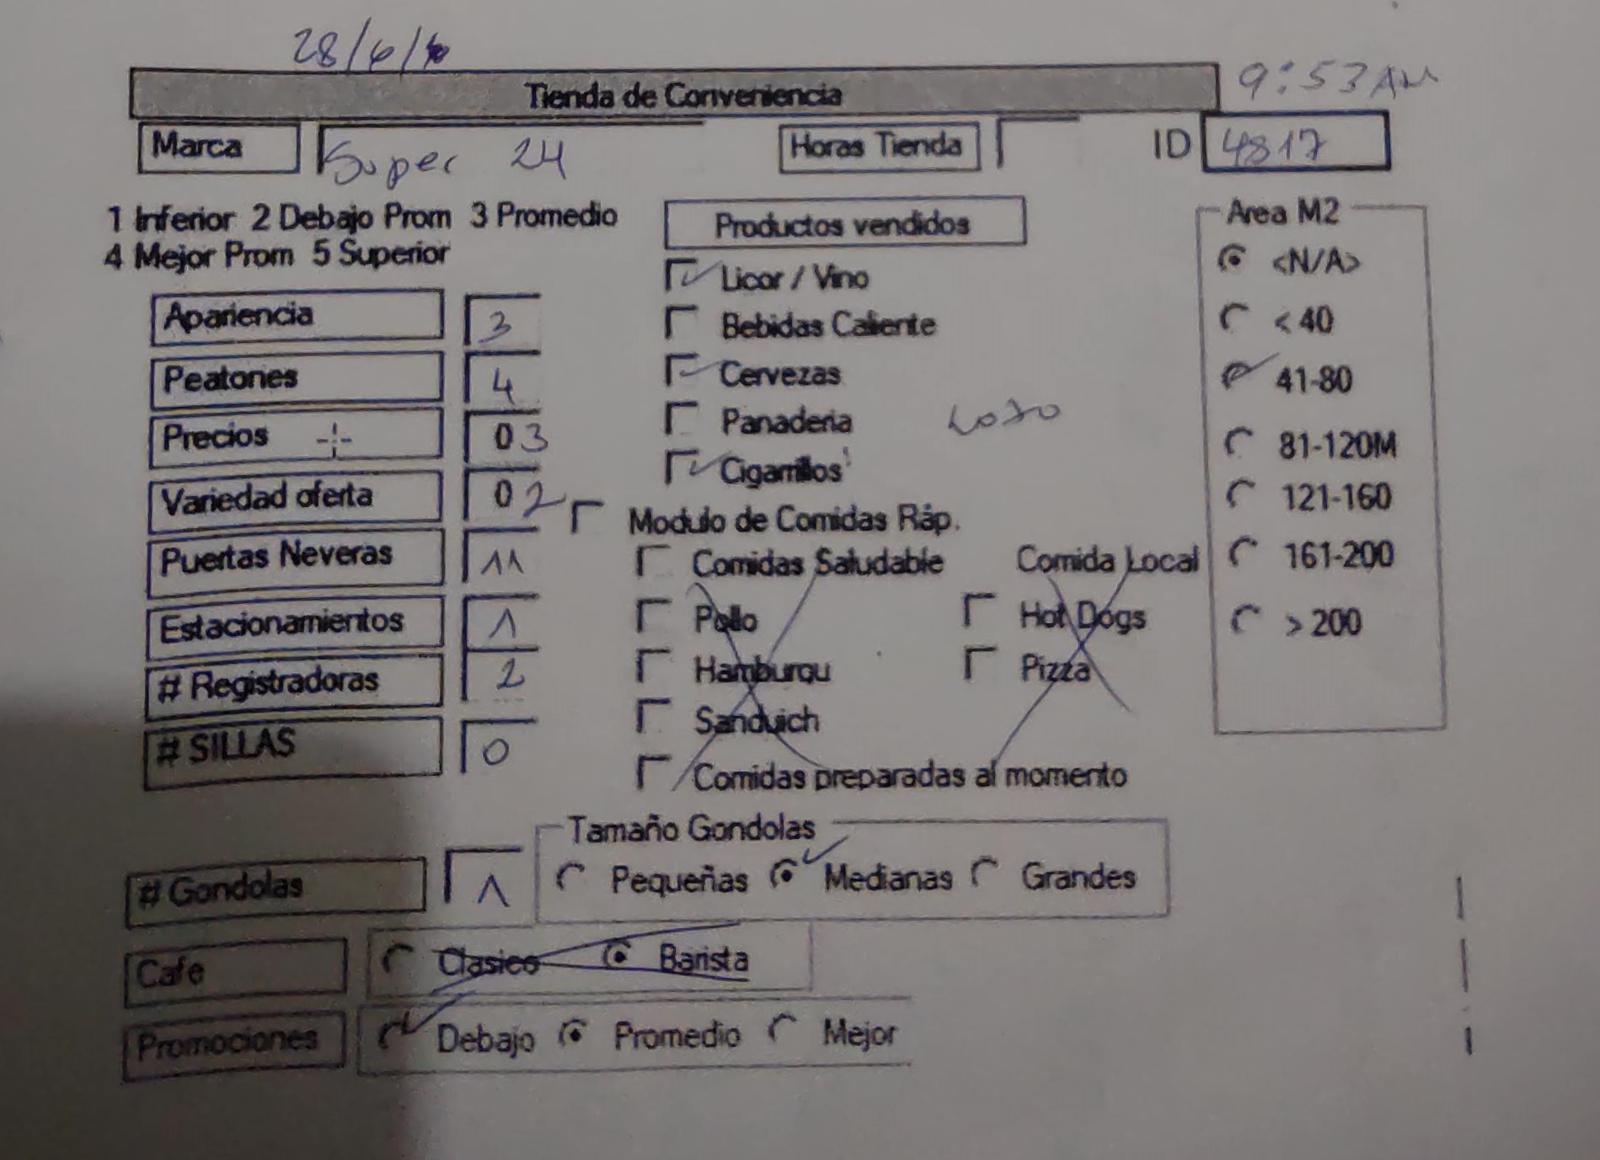 28/6/
Tienda de Conveniencia 9:53 AM
Marca Super 24 Horas Tienda ID 4817
1 Inferior 2 Debajo Prom 3 Promedio
4 Mejor Prom 5 Superior
Apariencia 3
Peatones 4
Precios 03
Variedad oferta 02
Puertas Neveras 11
Estacionamientos 1
# Registradoras 2
# SILLAS 0
Productos vendidos
Licor / Vino
Bebidas Caliente
Cervezas
Panaderia
Cigarrillos
Modulo de Comidas Ráp.
Comidas Saludable Comida Local
Pollo Hot Dogs
Hamburqu Pizza
Sanduich
Comidas preparadas al momento
Area M2
<N/A>
< 40
41-80
81-120M
121-160
161-200
> 200
Tamaño Gondolas
# Gondolas 1 Pequeñas Medianas Grandes
Cafe Clasico Barista
Promociones Debajo Promedio Mejor